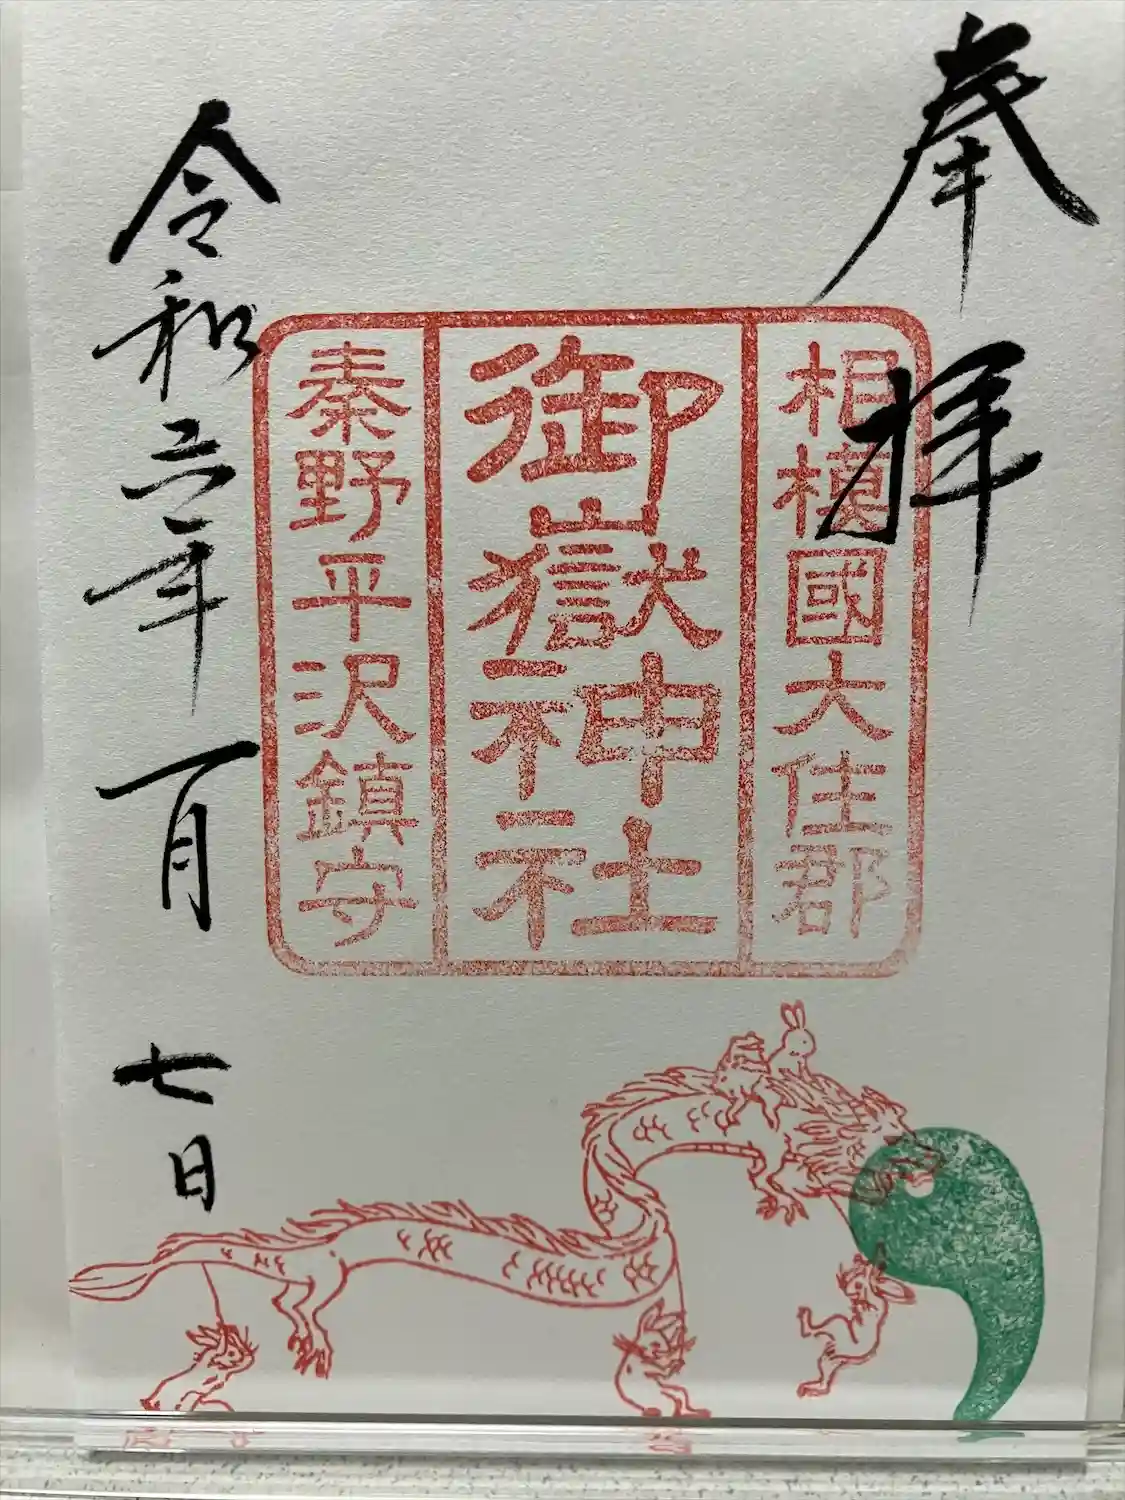 奉拝
相模國大住郡
御嶽神社
秦野平沢鎮守
令和六年一月七日